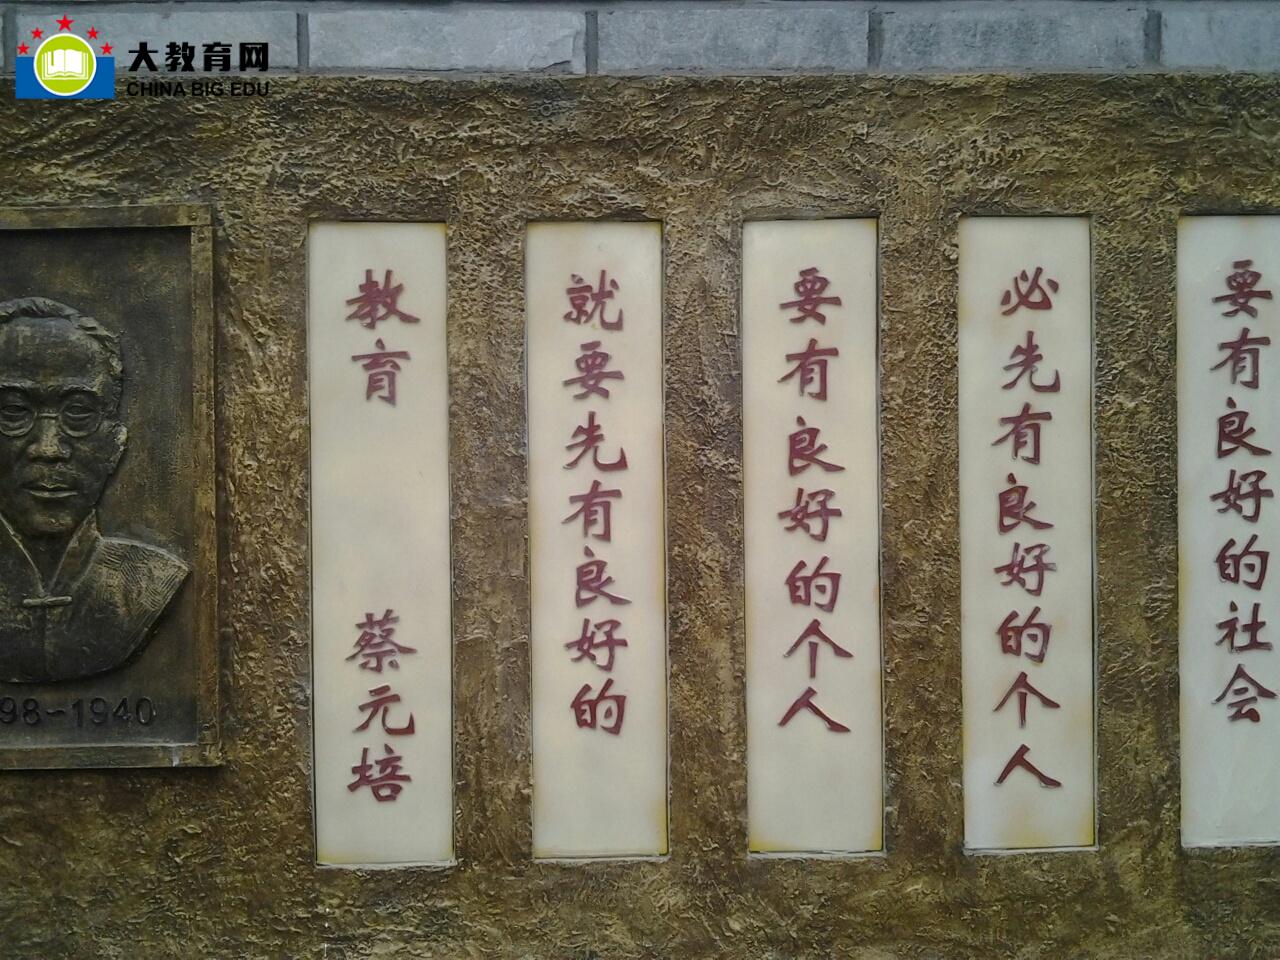 大教育网
CHINA BIG EDU
要有良好的社会
必先有良好的个人
要有良好的个人
就要先有良好的
教育 蔡元培
98-1940